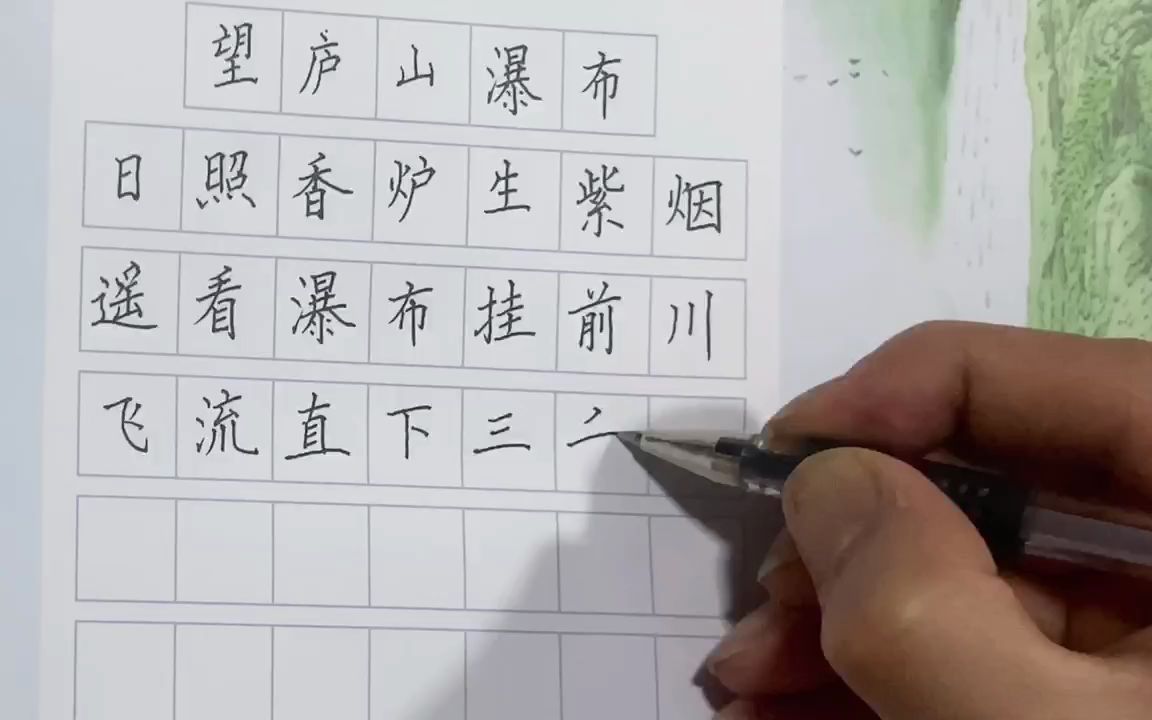 望庐山瀑布
日照香炉生紫烟
遥看瀑布挂前川
飞流直下三